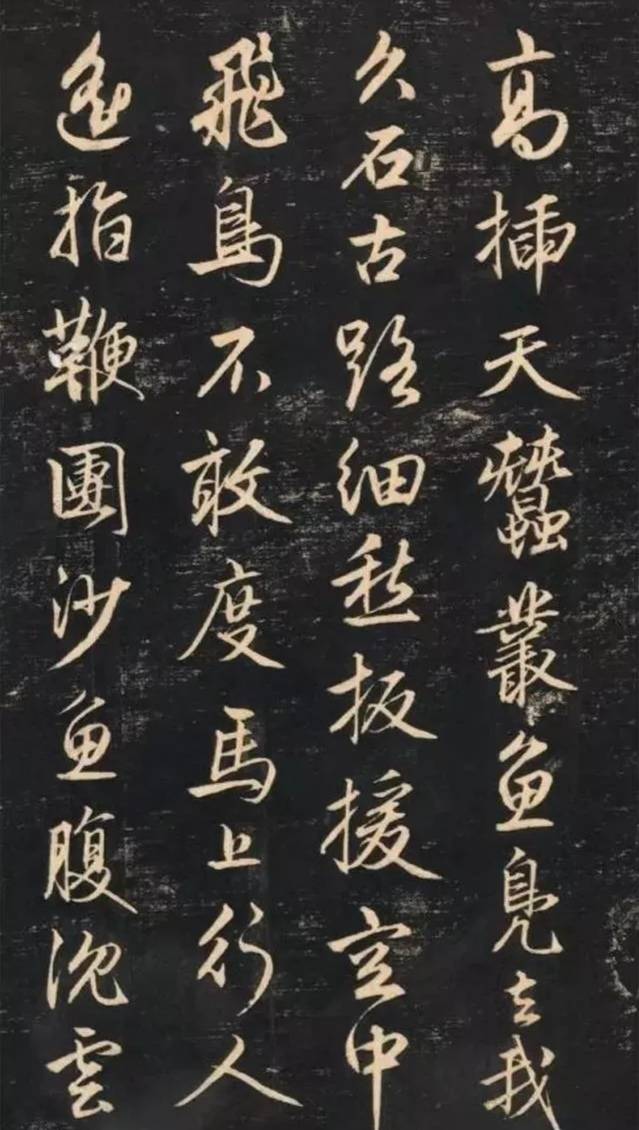 高插天蠶叢魚鳧去我
久石古路細愁扳援空中
飛鳥不敢度馬上行人
遙指鞭團沙魚腹沉雲